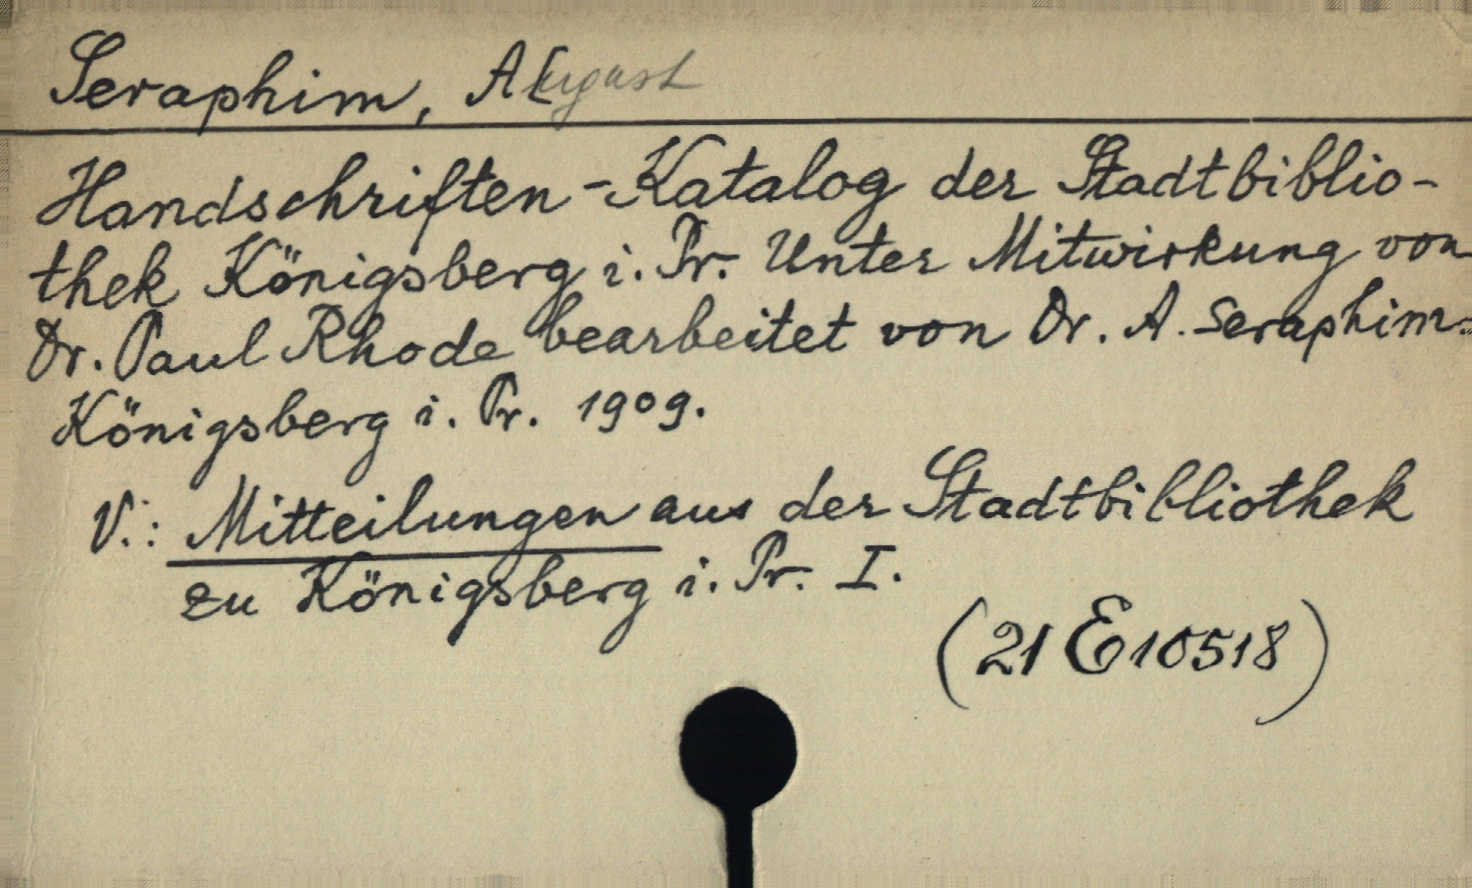 Seraphim, A[ugust
Handschriften-Katalog der Stadtbiblio-
thek Königsberg i. Pr. Unter Mitwirkung von
Dr. Paul Rhode bearbeitet von Dr. A. Seraphim.
Königsberg i. Pr. 1909.
V.: Mitteilungen aus der Stadtbibliothek
zu Königsberg i. Pr. I.
(21 E 10518)